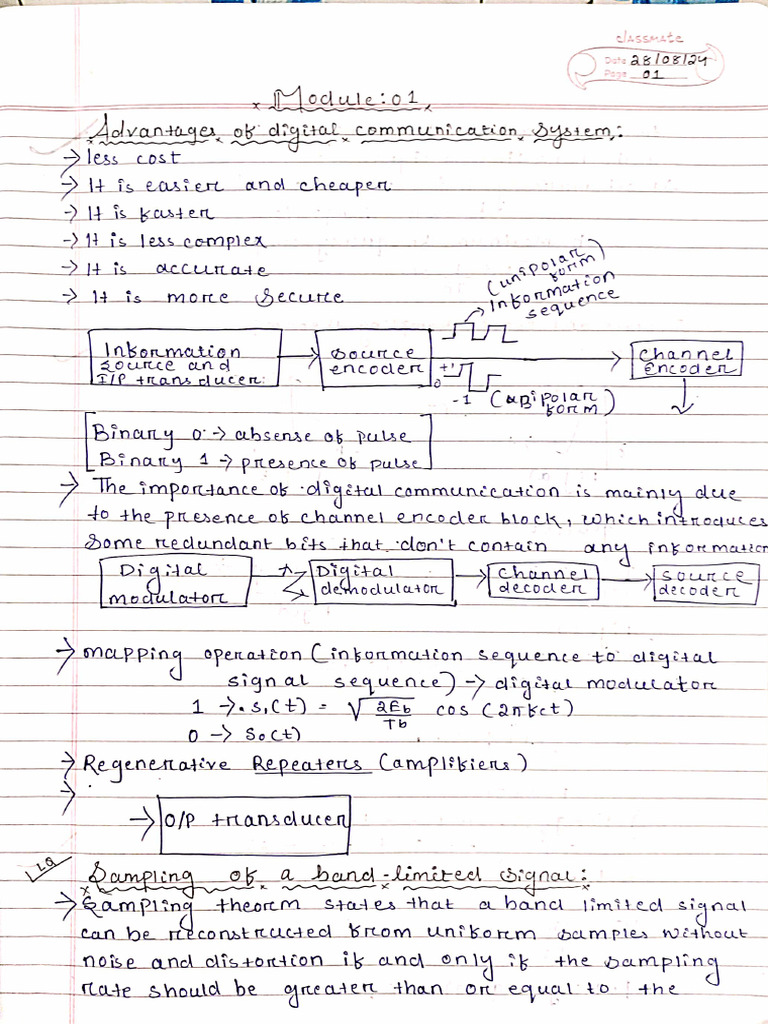 classmate
Date 28/08/24
Page 01
Module:01
Advantages of digital communication system:
→ less cost
→ It is easier and cheaper
→ It is faster
→ It is less complex
→ It is accurate
→ It is more secure
(unipolar form)
Information sequence
Information source and I/P transducer
source encoder
channel encoder
+1
0
-1
(Bipolar form)
Binary 0 → absense of pulse
Binary 1 → presence of pulse
→ The importance of digital communication is mainly due
to the presence of channel encoder block, which introduces
some redundant bits that don't contain any information
Digital modulator
Digital demodulator
channel decoder
source decoder
→ mapping operation (information sequence to digital
signal sequence) → digital modulator
1 → s₁(t) = √(2Eb/Tb) cos (2πfct)
0 → S₀(t)
→ Regenerative Repeaters (amplifiers)
→
→ O/P transducer
LQ
Sampling of a band-limited signal:
→ Sampling theorm states that a band limited signal
can be reconstructed from uniform samples without
noise and distortion if and only if the sampling
rate should be greater than or equal to the